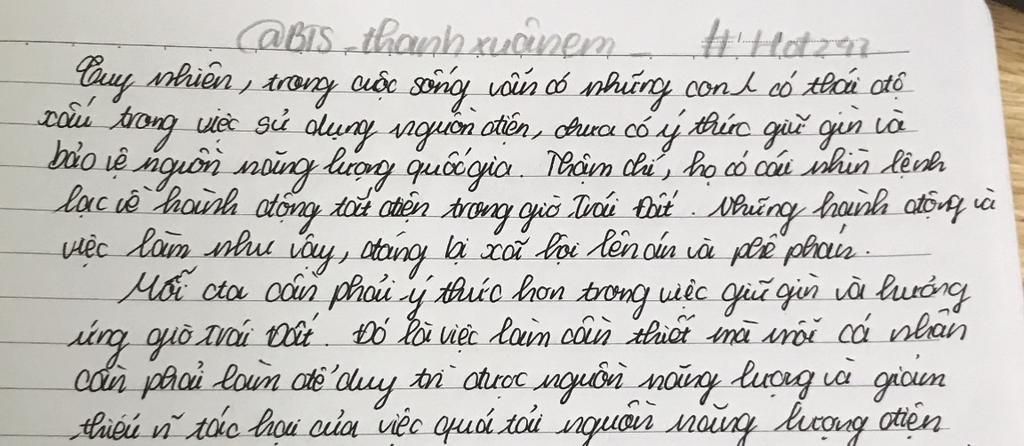 @BTS_thanhxuânem_ #Hot292
Tuy nhiên, trong cuộc sống vẫn có những con λ có thái độ
xấu trong việc sử dụng nguồn điện, chưa có ý thức giữ gìn và
bảo vệ nguồn năng lượng quốc gia. Thậm chí, họ có cái nhìn lệnh
lạc về hành động tắt điện trong giờ Trái Đất. Những hành động và
việc làm như vậy, đáng bị xã hội lên án và phê phán.
Mỗi cta cần phải ý thức hơn trong việc giữ gìn và hưởng
ứng giờ Trái Đất. Đó là việc làm cần thiết mà mỗi cá nhân
cần phải làm để duy trì được nguồn năng lượng và giảm
thiểu n~ tác hại của việc quá tải nguồn năng lượng điện